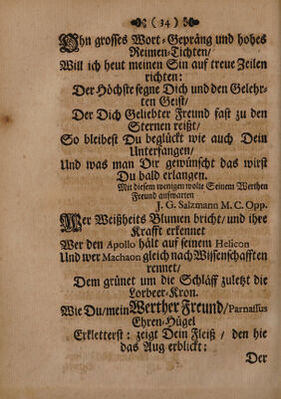 ( 14 )
Ohn grosses Wort-Gepräng und hohes
Reimen-Tichten/
Will ich heut meinen Sin auf treue Zeilen
richten:
Der Höchste segne Dich und den Gelehr-
ten Geist/
Der Dich Geliebter Freund fast zu den
Sternen reißt/
So bleibest Du beglückt wie auch Dein
Unterfangen/
Und was man Dir gewünscht das wirst
Du bald erlangen.
Mit diesem wenigen wolte Seinem Werthen
Freund aufwarten
J. G. Salzmann M. C. Opp.
Wer Weißheits Blumen bricht/ und ihre
Krafft erkennet
Wer den Apollo hält auf seinem Helicon
Und wer Machaon gleich nach Wissenschafften
rennet/
Dem grünet um die Schläff zuletzt die
Lorbeer-Kron.
Wie Du/mein Werther Freund/Parnassus
Ehren-Hügel
Erkletterst: zeigt Dein Fleiß/ den hie
das Aug erblickt:
Der